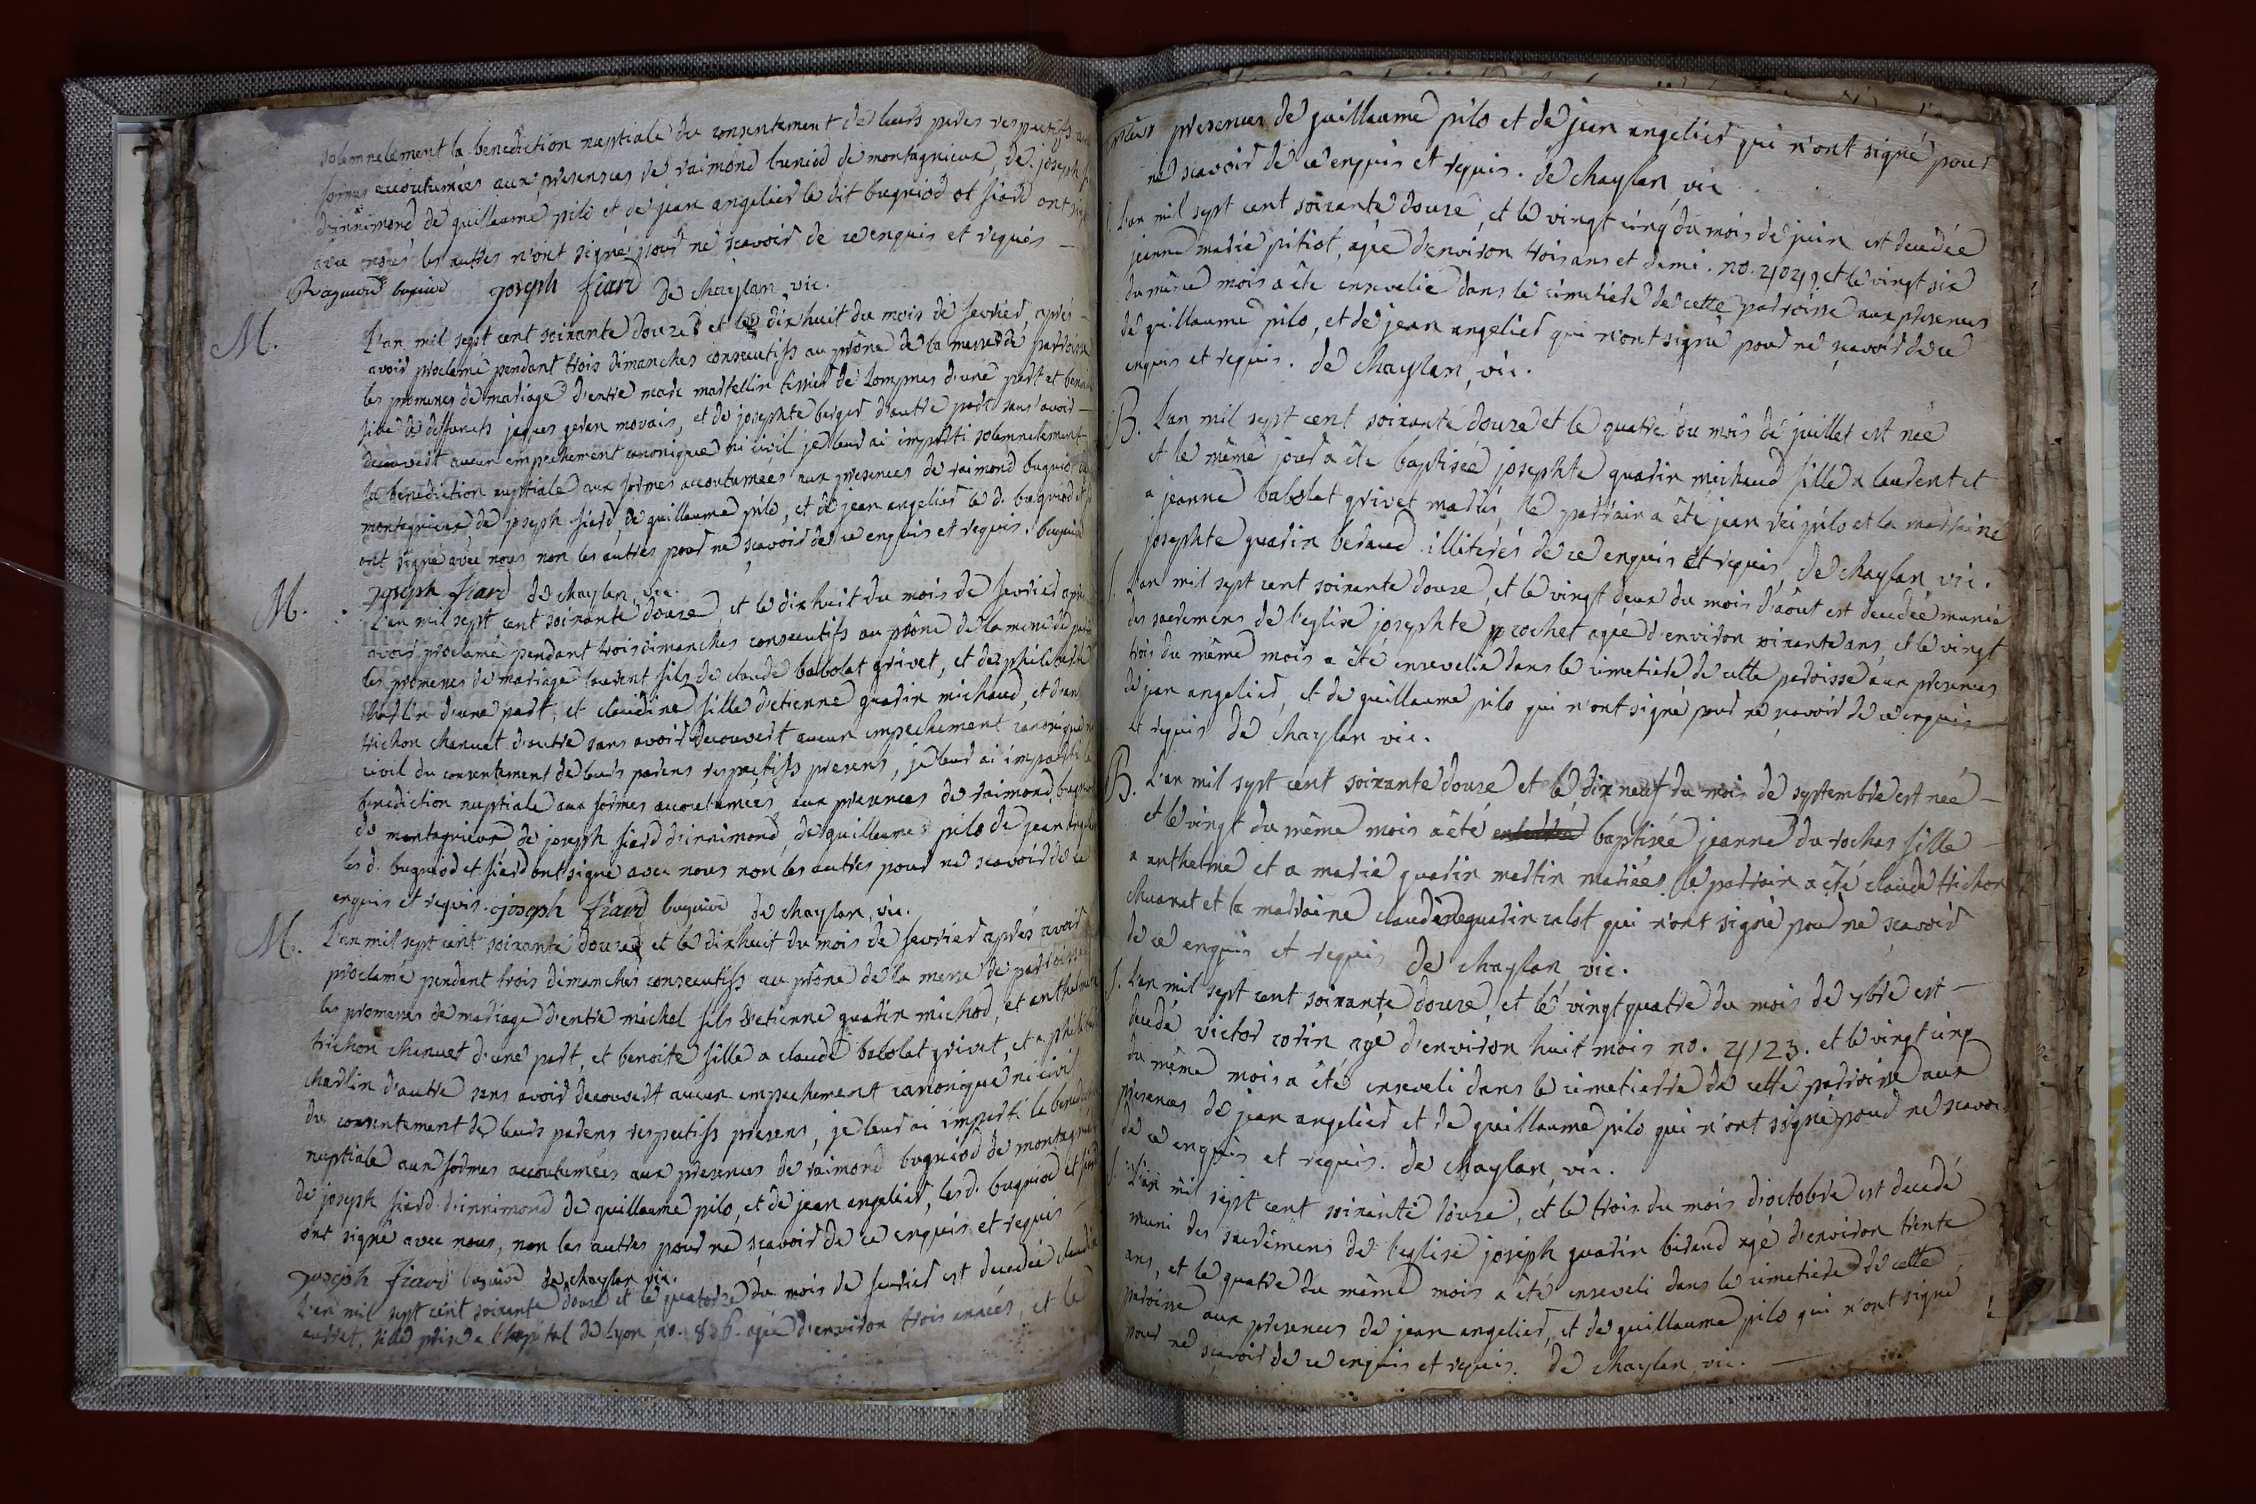 solemnelement la benediction nuptiale du consentement de leurs peres respectifs aux
formes accoutumées aux presences de raimond buniod de montagnieux, de joseph
d'innimond de guillaume pilo et de jean angelier le dit bugniod et fiard ont signé
avec nous les autres n'ont signé pour ne scavoir de ce enquis et requis —
Raymond bugniod joseph fiard De chaylan, vic.
M. L'an mil sept cent soixante douze et le dix huit du mois de fevrier, aprés
avoir proclamé pendant trois dimanches consecutifs au prône de la messe de parroisse
les promesses de mariage d'entre marc martellin tissier de Lompnes d'une part et benoite
fille de deffuncts jaques geren movais, et de josephte berger d'autre part sans avoir —
decouvert aucun empechement canonique ni civil je leur ai imparti solemnelement
la benediction nuptiale aux formes accoutumées aux presences de raimond bugniod de
montagnieux de joseph fiard, de guillaume pilo, et de jean angelier le d. bugniod et
ont signé avec nous non les autres pour ne sçavoir de ce enquis et requis. bugniod
joseph fiard de chaylan, vic.
M. L'an mil sept cent soixante douze, et le dix huit du mois de fevrier aprés
avoir proclamé pendant trois dimanches consecutifs au prône de la messe de
les promesses de mariage laurent fils de claude babolat grivet, et de philiberte
charlin d'une part, et claudine fille d'etienne guarin michaud, et d'ant
trichon chanuet d'autre sans avoir decouvert aucun empechement canonique ni
civil du consentement de leurs parens respectifs presens, je leur ai imparti la
benediction nuptiale aux formes accoutumées aux presences de raimond bugniod
de montagnieux de joseph fiard d'innimond, de guillaume pilo de jean angelier
les d. bugniod et fiard ont signé avec nous non les autres pour ne scavoir de ce
enquis et requis. joseph fiard bugniod de chaylan, vic.
M. L'an mil sept cent soixante douze, et le dixhuit du mois de fevrier aprés avoir
proclamé pendant trois dimanches consecutifs au prône de la messe de parroisse
les promesses de mariage d'entre michel fils d'etienne guarin michod, et anthelmette
trichon chanuet d'une part, et benoite fille a claude babolat grivet, et a philiberte
charlin d'autre sans avoir decouvert aucun empechement canonique ni civil
du consentement de leurs parens respectifs presens, je leur ai imparti la benediction
nuptiale aux formes accoutumées aux presences de raimond bugniod de montagnieux
de joseph fiard d'innimond de guillaume pilo, et de jean angelier, les d. bugniod et fiard
ont signé avec nous, non les autres pour ne sçavoir de ce enquis et requis —
joseph fiard bugniod de chaylan vic.
L'an mil sept cent soixante douze et le quatorze du mois de fevrier est decedée claudine
fille prise a l'hopital de Lyon no. agée d'environ trois années, et le
presences de guillaume pilo et de jean angelier qui n'ont signé pour
ne scavoir de ce enquis et requis. de chaylan, vic
L'an mil sept cent soixante douze, et le vingt cinq du mois de juin est decedée
jeanne marie pitiot, agée d'environ trois ans et demi. no. et le vingt six
du même mois a été ensevelie dans le cimetiere de cette parroisse aux presences
de guillaume pilo, et de jean angelier qui n'ont signé pour ne sçavoir de ce
enquis et requis. de chaylan, vic.
B. L'an mil sept cent soixante douze et le quatre du mois de juillet est née
et le même jour a été baptisée josephte guarin michaud fille a laurent et
a jeanne babolat grivet mariés, le parrain a été jean pilo et la marraine
josephte guarin beraud illiterés de ce enquis et requis, de chaylan vic.
L'an mil sept cent soixante douze, et le vingt deux du mois d'août est decedée munie
des sacremens de l'eglise josephte prochet agée d'environ soixante ans, et le vingt
trois du même mois a été ensevelie dans le cimetiere de cette paroisse aux presences
de jean angelier, et de guillaume pilo qui n'ont signé pour ne sçavoir de ce enquis
et requis de chaylan vic.
B. L'an mil sept cent soixante douze et le dix neuf du mois de septembre est née —
et le vingt du même mois a été baptisée jeanne du rochas fille —
a anthelme et a marie guarin martin mariées le parrain a été claude trichon
chuanet et la marraine claudine guarin calot qui n'ont signé pour ne scavoir
de ce enquis et requis de chaylan, vic.
S. L'an mil sept cent soixante douze, et le vingt quatre du mois de 7bre est —
decedé victor corin agé d'environ huit mois no. 4123. et le vingt cinq
du même mois a été enseveli dans le cimetierre de cette parroisse aux
presences de jean angelier et de guillaume pilo qui n'ont signé pour ne scavoir
de ce enquis et requis. de chaylan, vic.
L'an mil sept cent soixante douze, et le trois du mois d'octobre est decedé
muni des sacremens de l'eglise joseph guarin beraud agé d'environ trente
ans, et le quatre du même mois a été enseveli dans le cimetiere de cette
paroisse aux presences de jean angelier, et de guillaume pilo qui n'ont signé
pour ne scavoir de ce enquis et requis. de chaylan, vic. —